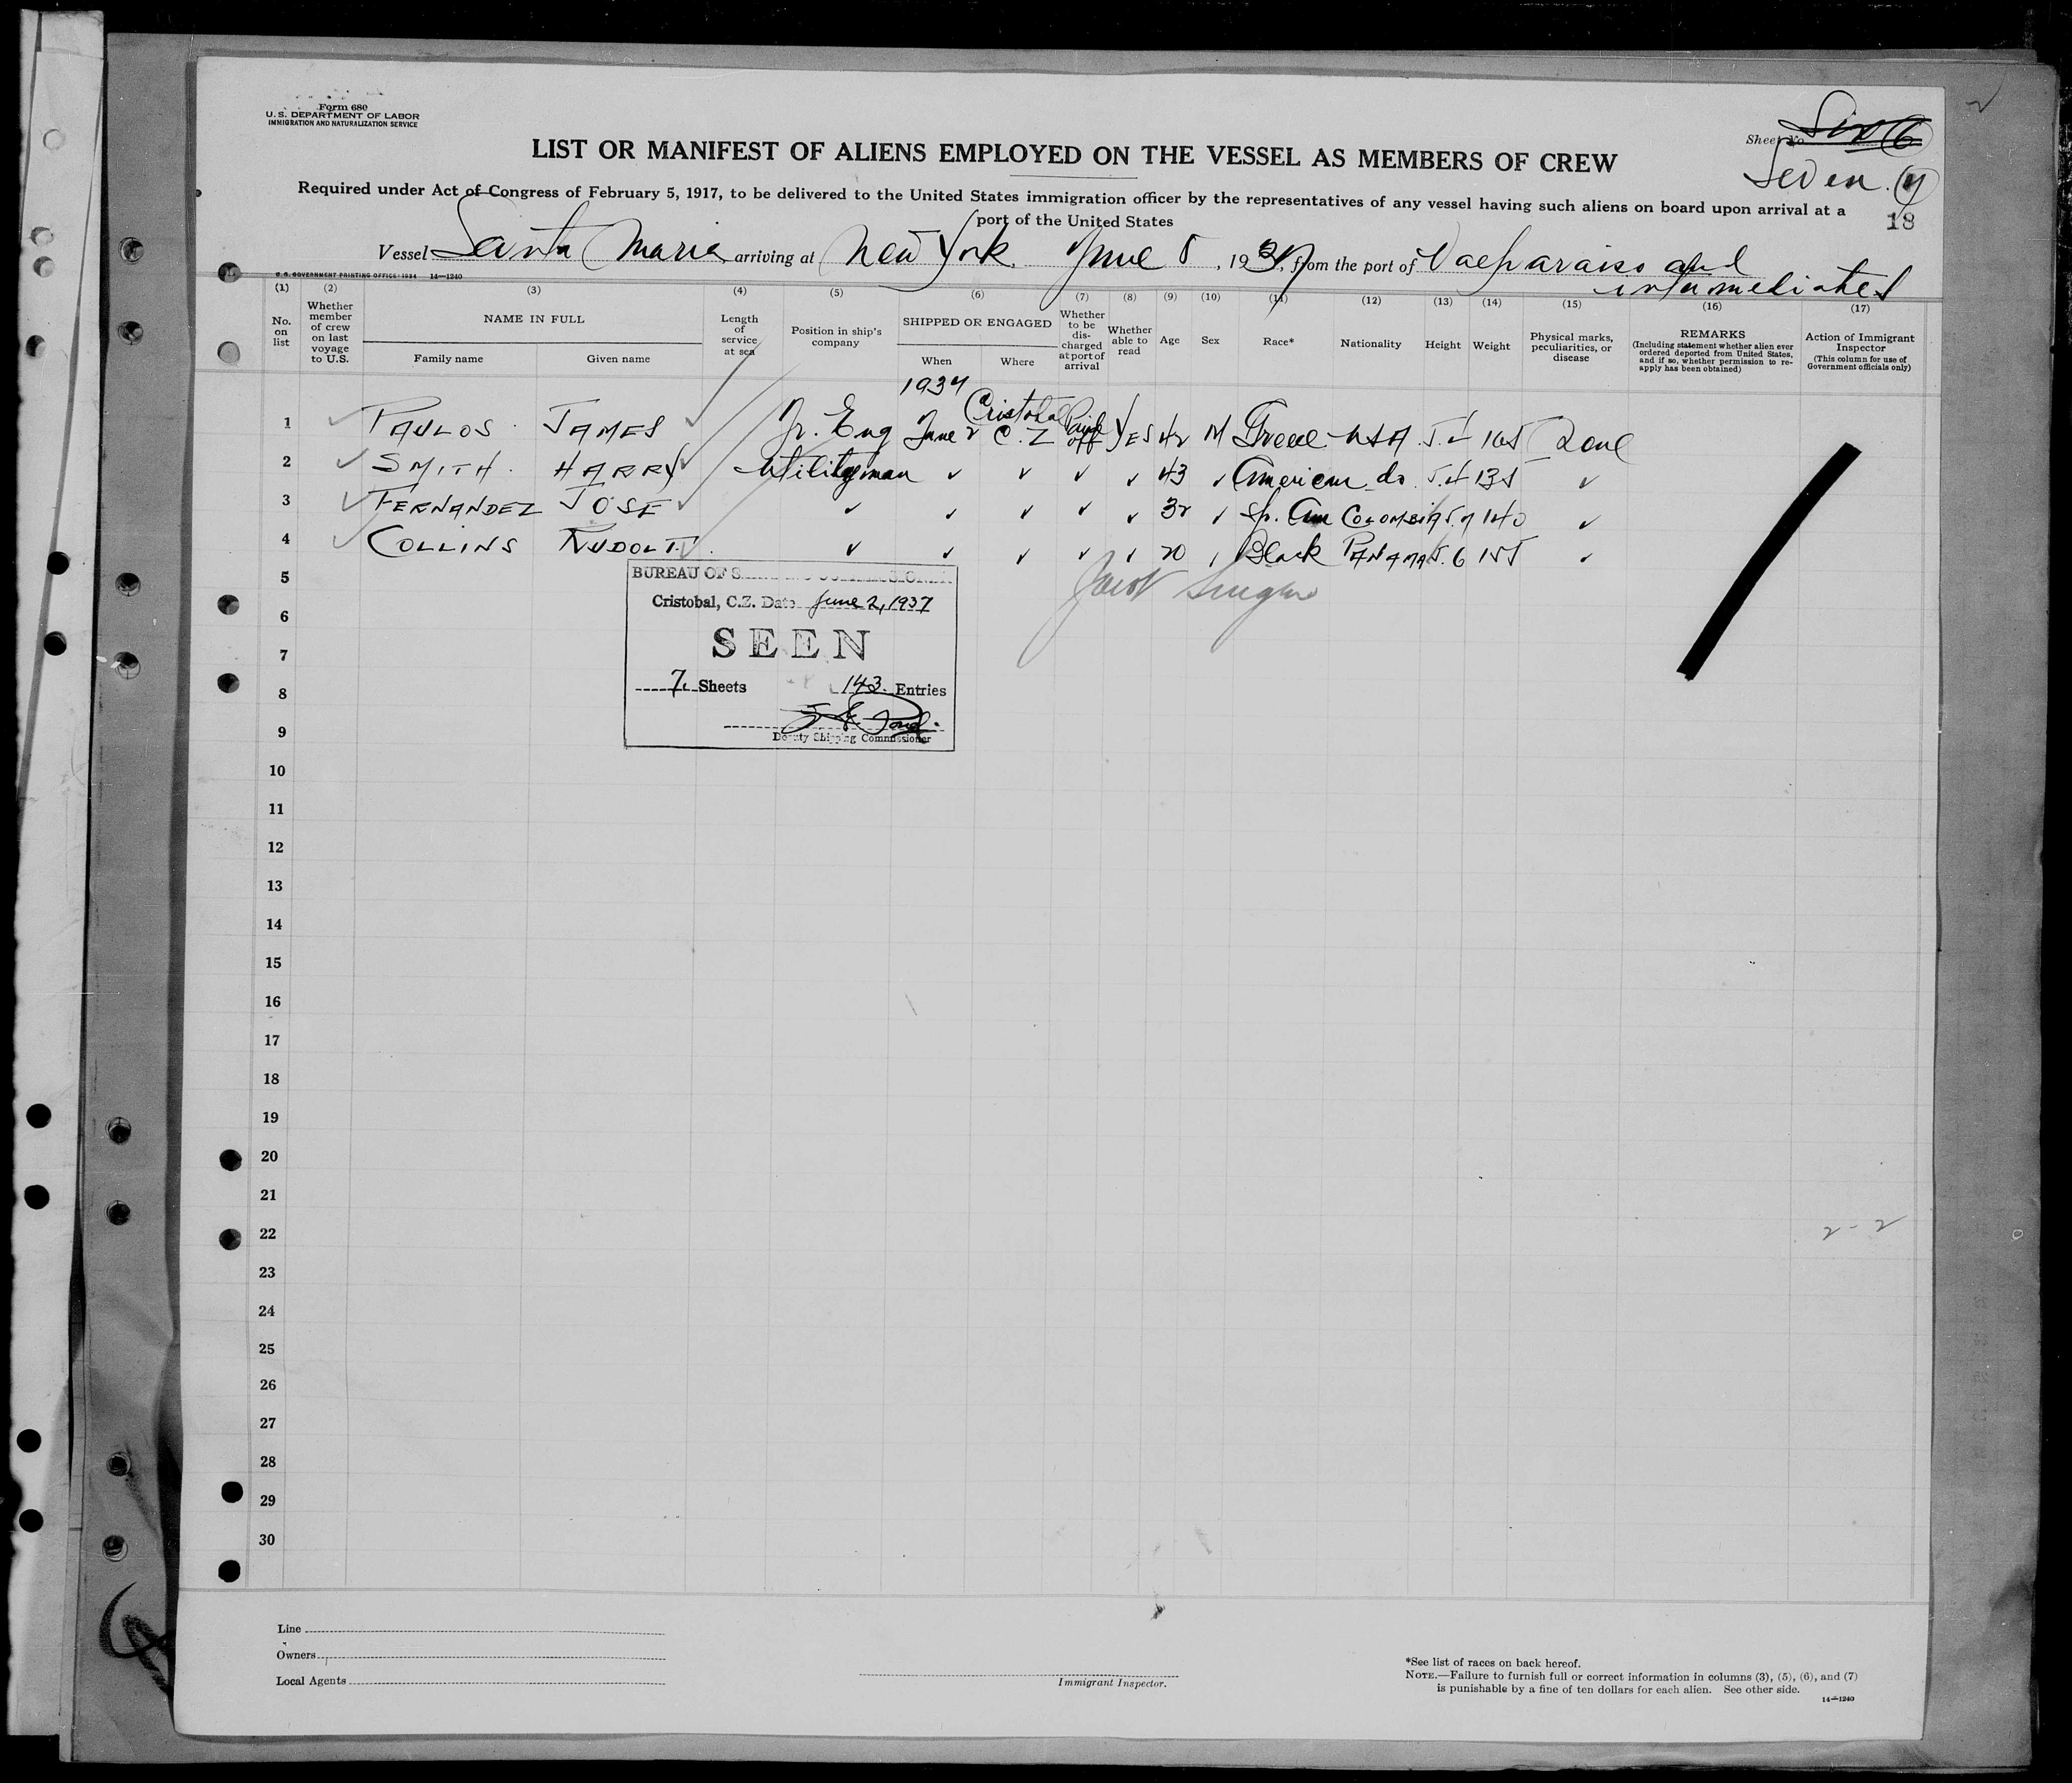 Form 680
U. S. DEPARTMENT OF LABOR
IMMIGRATION AND NATURALIZATION SERVICE
Sheet No. Six (6)
Seven (7)
18
LIST OR MANIFEST OF ALIENS EMPLOYED ON THE VESSEL AS MEMBERS OF CREW
Required under Act of Congress of February 5, 1917, to be delivered to the United States immigration officer by the representatives of any vessel having such aliens on board upon arrival at a
port of the United States
Vessel Santa Maria arriving at New York June 8, 1937, from the port of Valparaiso and
intermediates
U. S. GOVERNMENT PRINTING OFFICE: 1934 14—1240
(1) (2) (3) (4) (5) (6) (7) (8) (9) (10) (11) (12) (13) (14) (15) (16) (17)
No. on list
Whether member of crew on last voyage to U.S.
NAME IN FULL
Family name
Given name
Length of service at sea
Position in ship's company
SHIPPED OR ENGAGED
When
Where
Whether to be discharged at port of arrival
Whether able to read
Age
Sex
Race*
Nationality
Height
Weight
Physical marks, peculiarities, or disease
REMARKS
(Including statement whether alien ever ordered deported from United States, and if so, whether permission to reapply has been obtained)
Action of Immigrant Inspector
(This column for use of Government officials only)
1937
1 ✓ PAULOS JAMES ✓ Jr. Eng June 2 Cristobal C. Z Paid off YES 42 M USA 165
2 ✓ SMITH HARRY ✓ Utilityman ✓ ✓ ✓ ✓ 43 ✓ American do 5.4 135 ✓
3 ✓ FERNANDEZ JOSE ✓ ✓ ✓ ✓ ✓ ✓ 32 ✓ Sp. Am COLOMBIA 5.7 140 ✓
4 ✓ COLLINS ✓ ✓ ✓ ✓ ✓ ✓ 20 ✓ Black PANAMA 5.6 155 ✓
5
6
7
8
9
10
11
12
13
14
15
16
17
18
19
20
21
22
23
24
25
26
27
28
29
30
BUREAU OF
Cristobal, C.Z. Date June 2, 1937
SEEN
7 Sheets 143 Entries
Deputy Shipping Commissioner
2 - 2
Line
Owners
Local Agents
Immigrant Inspector.
*See list of races on back hereof.
NOTE.—Failure to furnish full or correct information in columns (3), (5), (6), and (7)
is punishable by a fine of ten dollars for each alien. See other side.
14—1240